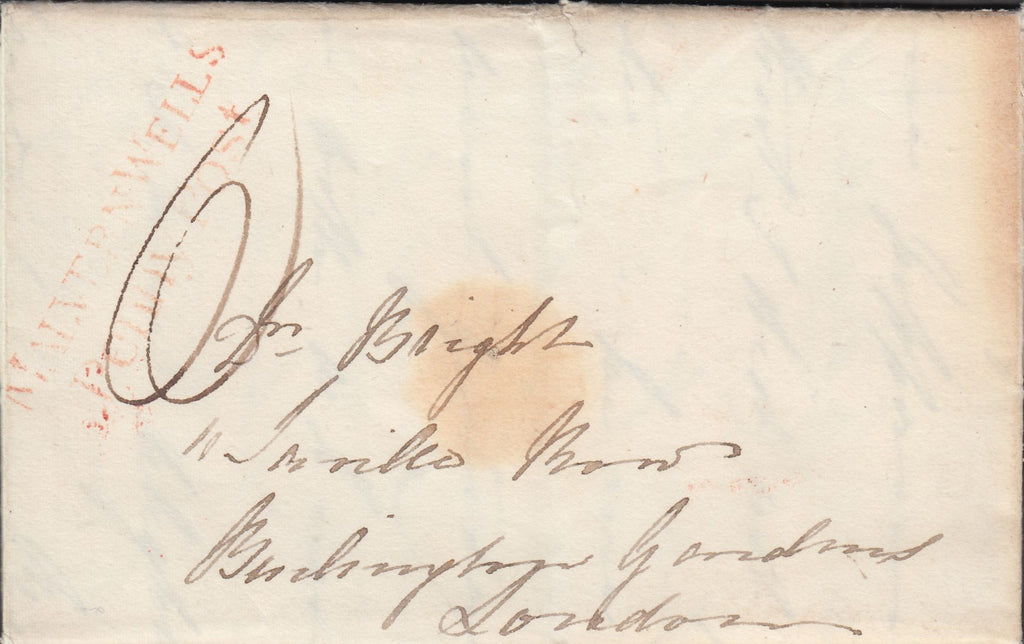 MALVERN WELLS
PENNY POST
Dr Bright
11 Saville Row
Burlington Gardens
London